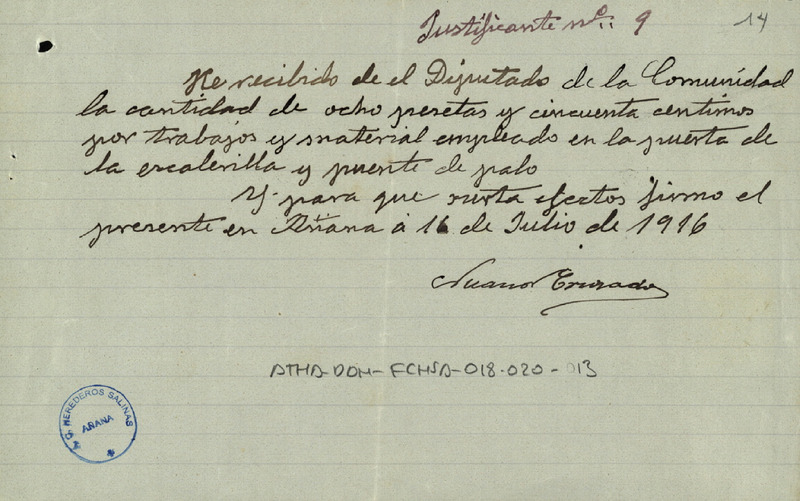 Justificante nº: 9
14
He recibido de el Diputado de la Comunidad
la cantidad de ocho pesetas y cincuenta centimos
por trabajos y material empleado en la puerta de
la escalerilla y puente de palo
Y para que surta efectos firmo el
presente en Añana á 16 de Julio de 1916
ATHA-DOH-FCHSA-018-020-013
HEREDEROS SALINAS
AÑANA